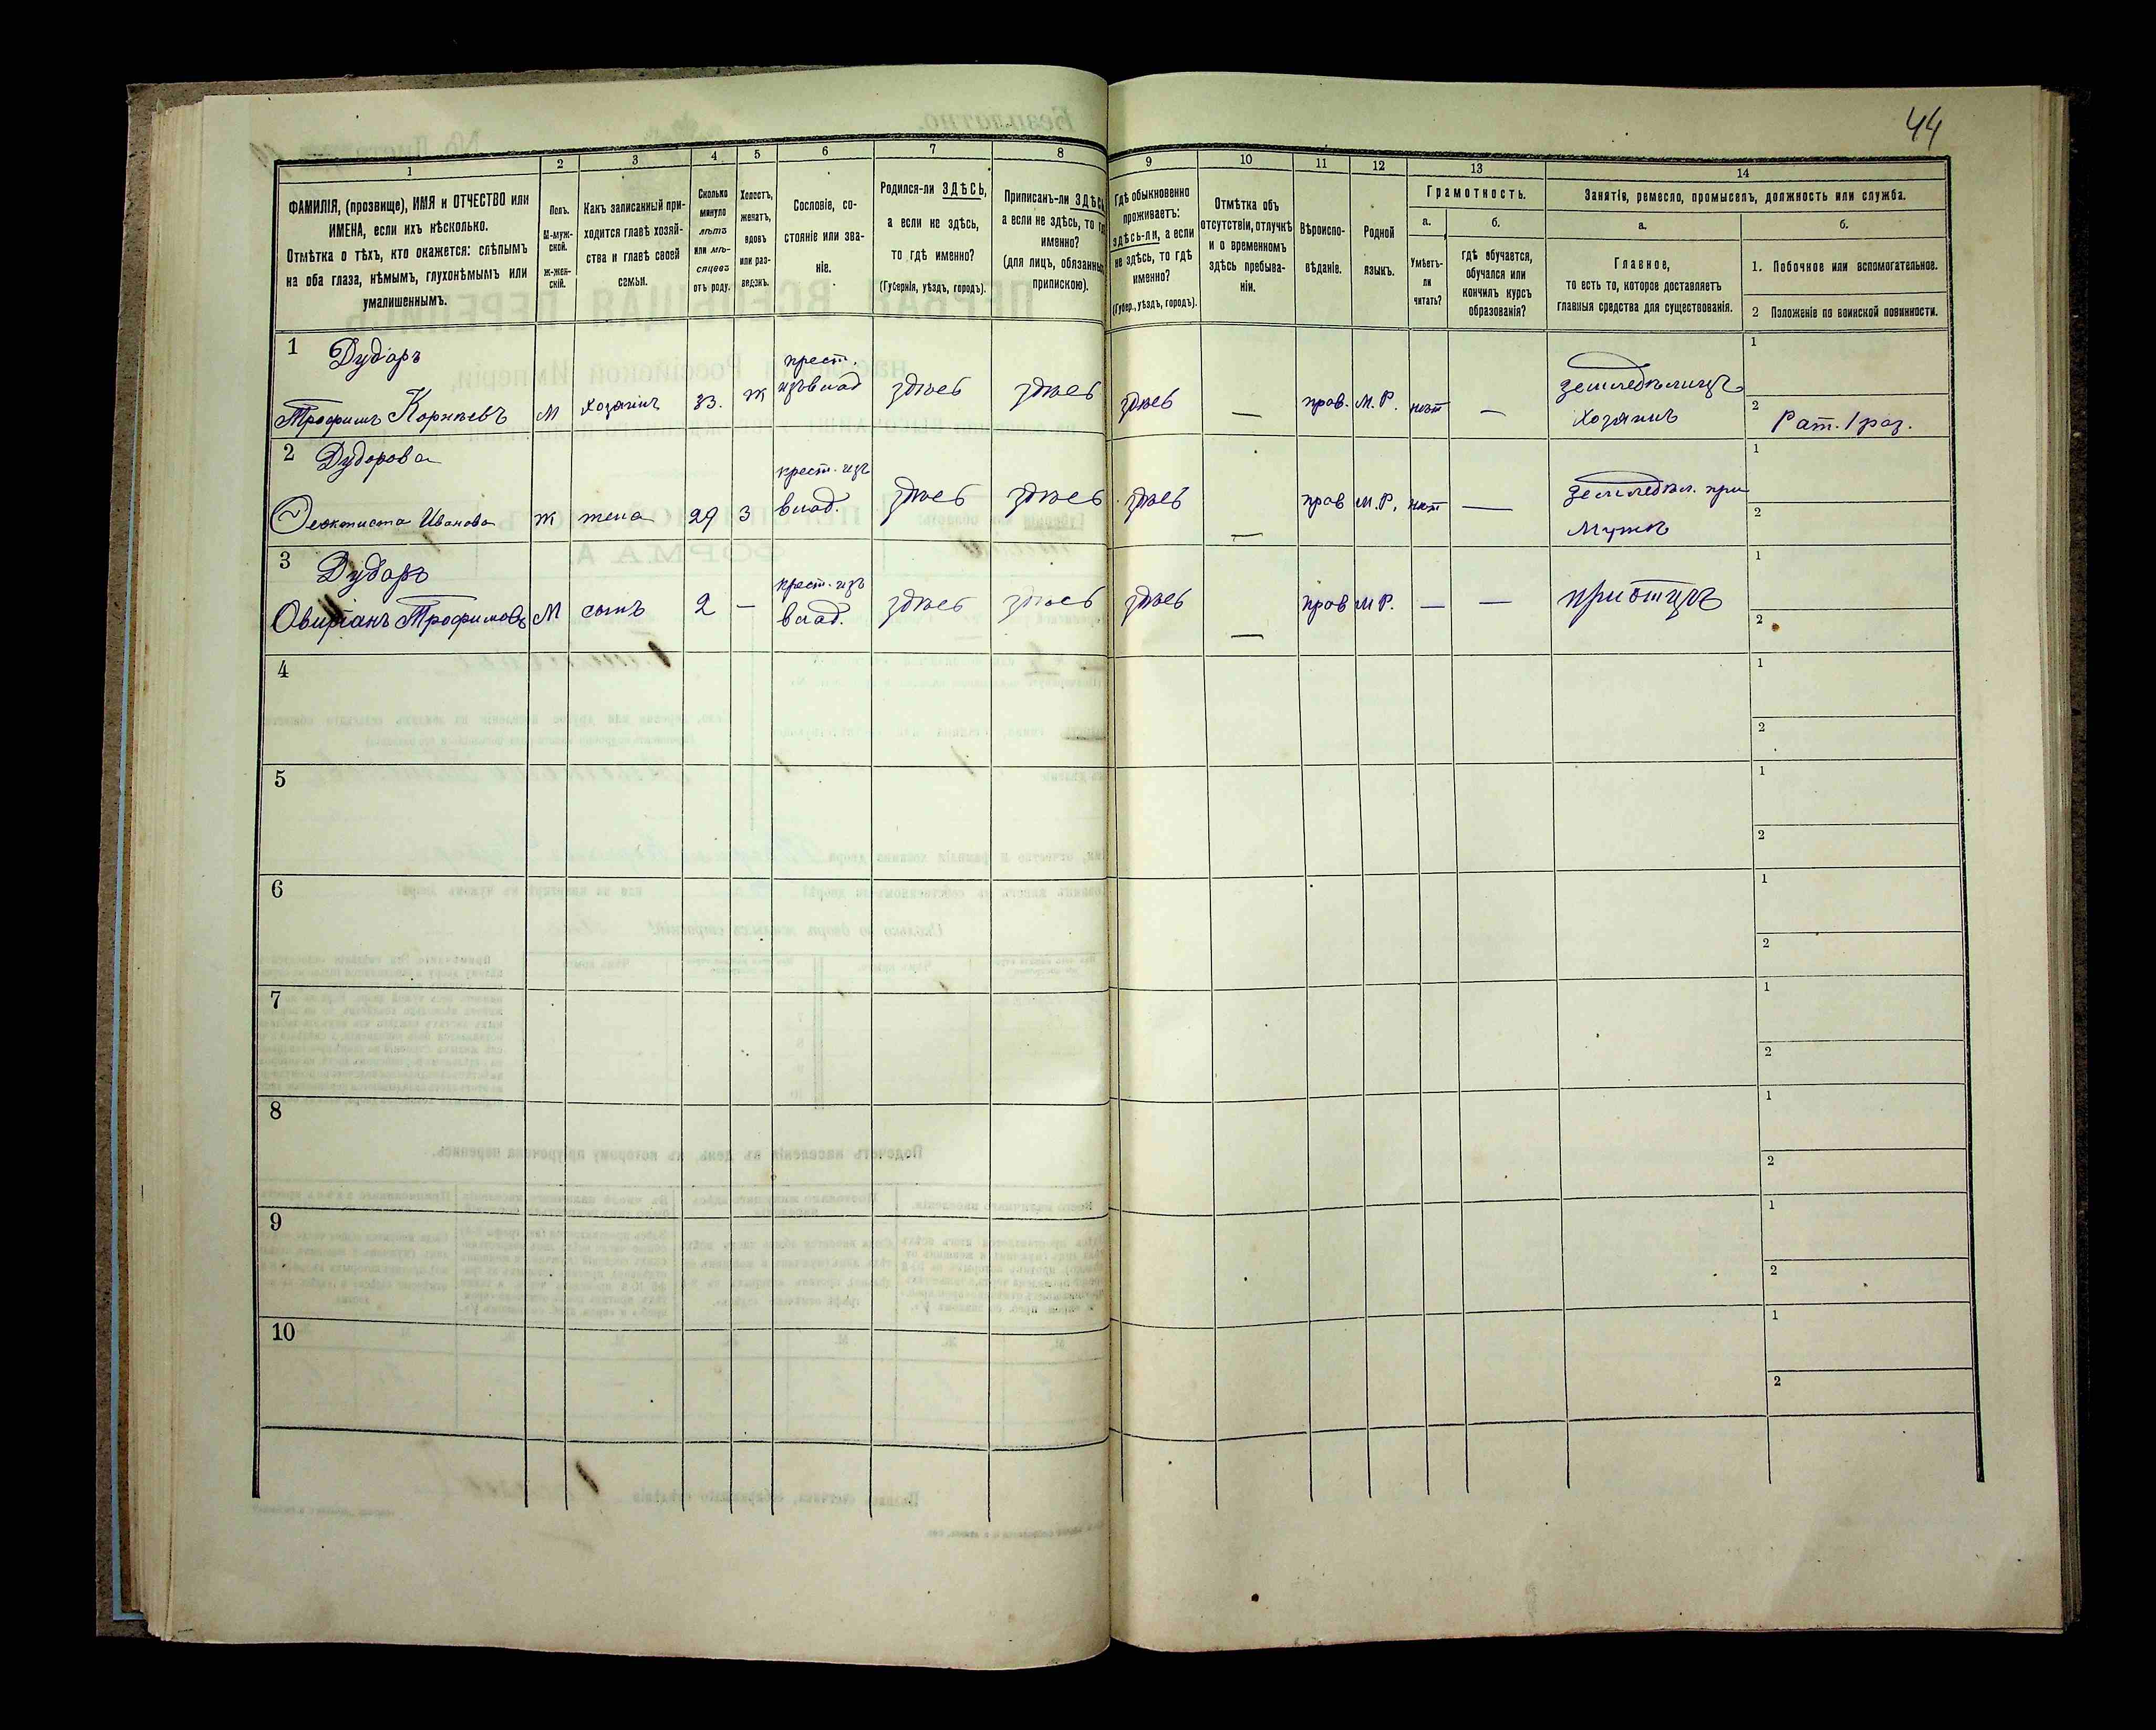 44
1 2 3 4 5 6 7 8 9 10 11 12 13 14
ФАМИЛІЯ, (прозвище), ИМЯ и ОТЧЕСТВО или
ИМЕНА, если ихъ нѣсколько.
Отмѣтка о тѣхъ, кто окажется: слѣпымъ
на оба глаза, нѣмымъ, глухонѣмымъ или
умалишеннымъ.
Полъ.
М-муж-
ской.
Ж-жен-
скій.
Какъ записанный при-
ходится главѣ хозяй-
ства и главѣ своей
семьи.
Сколько
минуло
лѣтъ
или мѣ-
сяцевъ
отъ роду.
Холостъ,
женатъ,
вдовъ
или раз-
веденъ.
Сословіе, со-
стояніе или зва-
ніе.
Родился-ли ЗДѢСЬ,
а если не здѣсь,
то гдѣ именно?
(Губернія, уѣздъ, городъ).
Приписанъ-ли ЗДѢСЬ,
а если не здѣсь, то гдѣ
именно?
(для лицъ, обязанныхъ
припискою).
Гдѣ обыкновенно
проживаетъ:
здѣсь-ли, а если
не здѣсь, то гдѣ
именно?
(Губер., уѣздъ, городъ).
Отмѣтка объ
отсутствіи, отлучкѣ
и о временномъ
здѣсь пребыва-
ніи.
Вѣроиспо-
вѣданіе.
Родной
языкъ.
Грамотность.
а.
Умѣетъ-
ли
читать?
б.
гдѣ обучается,
обучался или
кончилъ курсъ
образованія?
Занятія, ремесло, промыселъ, должность или служба.
а.
Главное,
то есть то, которое доставляетъ
главныя средства для существованія.
б.
1. Побочное или вспомогательное.
2 Положеніе по воинской повинности.
1 Дударь
Трофимъ Корнѣевъ М хозяинъ 33. ж
крест.
изъ влад
здѣсь здѣсь здѣсь — прав. М.Р. нѣт —
земледѣлецъ
хозяинъ
1
2 Рат. 1 раз.
2 Дударова
Феоктиста Иванова Ж жена 29 З
крест. изъ
влад.
здѣсь здѣсь здѣсь — прав М.Р. нѣт —
земледѣл. при
мужѣ
1
2
3 Дударь
Трофимовъ М сынъ 2 —
крест. изъ
влад.
здѣсь здѣсь здѣсь — прав М.Р. — —
при отцѣ
1
2
4
1
2
5
1
2
6
1
2
7
1
2
8
1
2
9
1
2
10
1
2